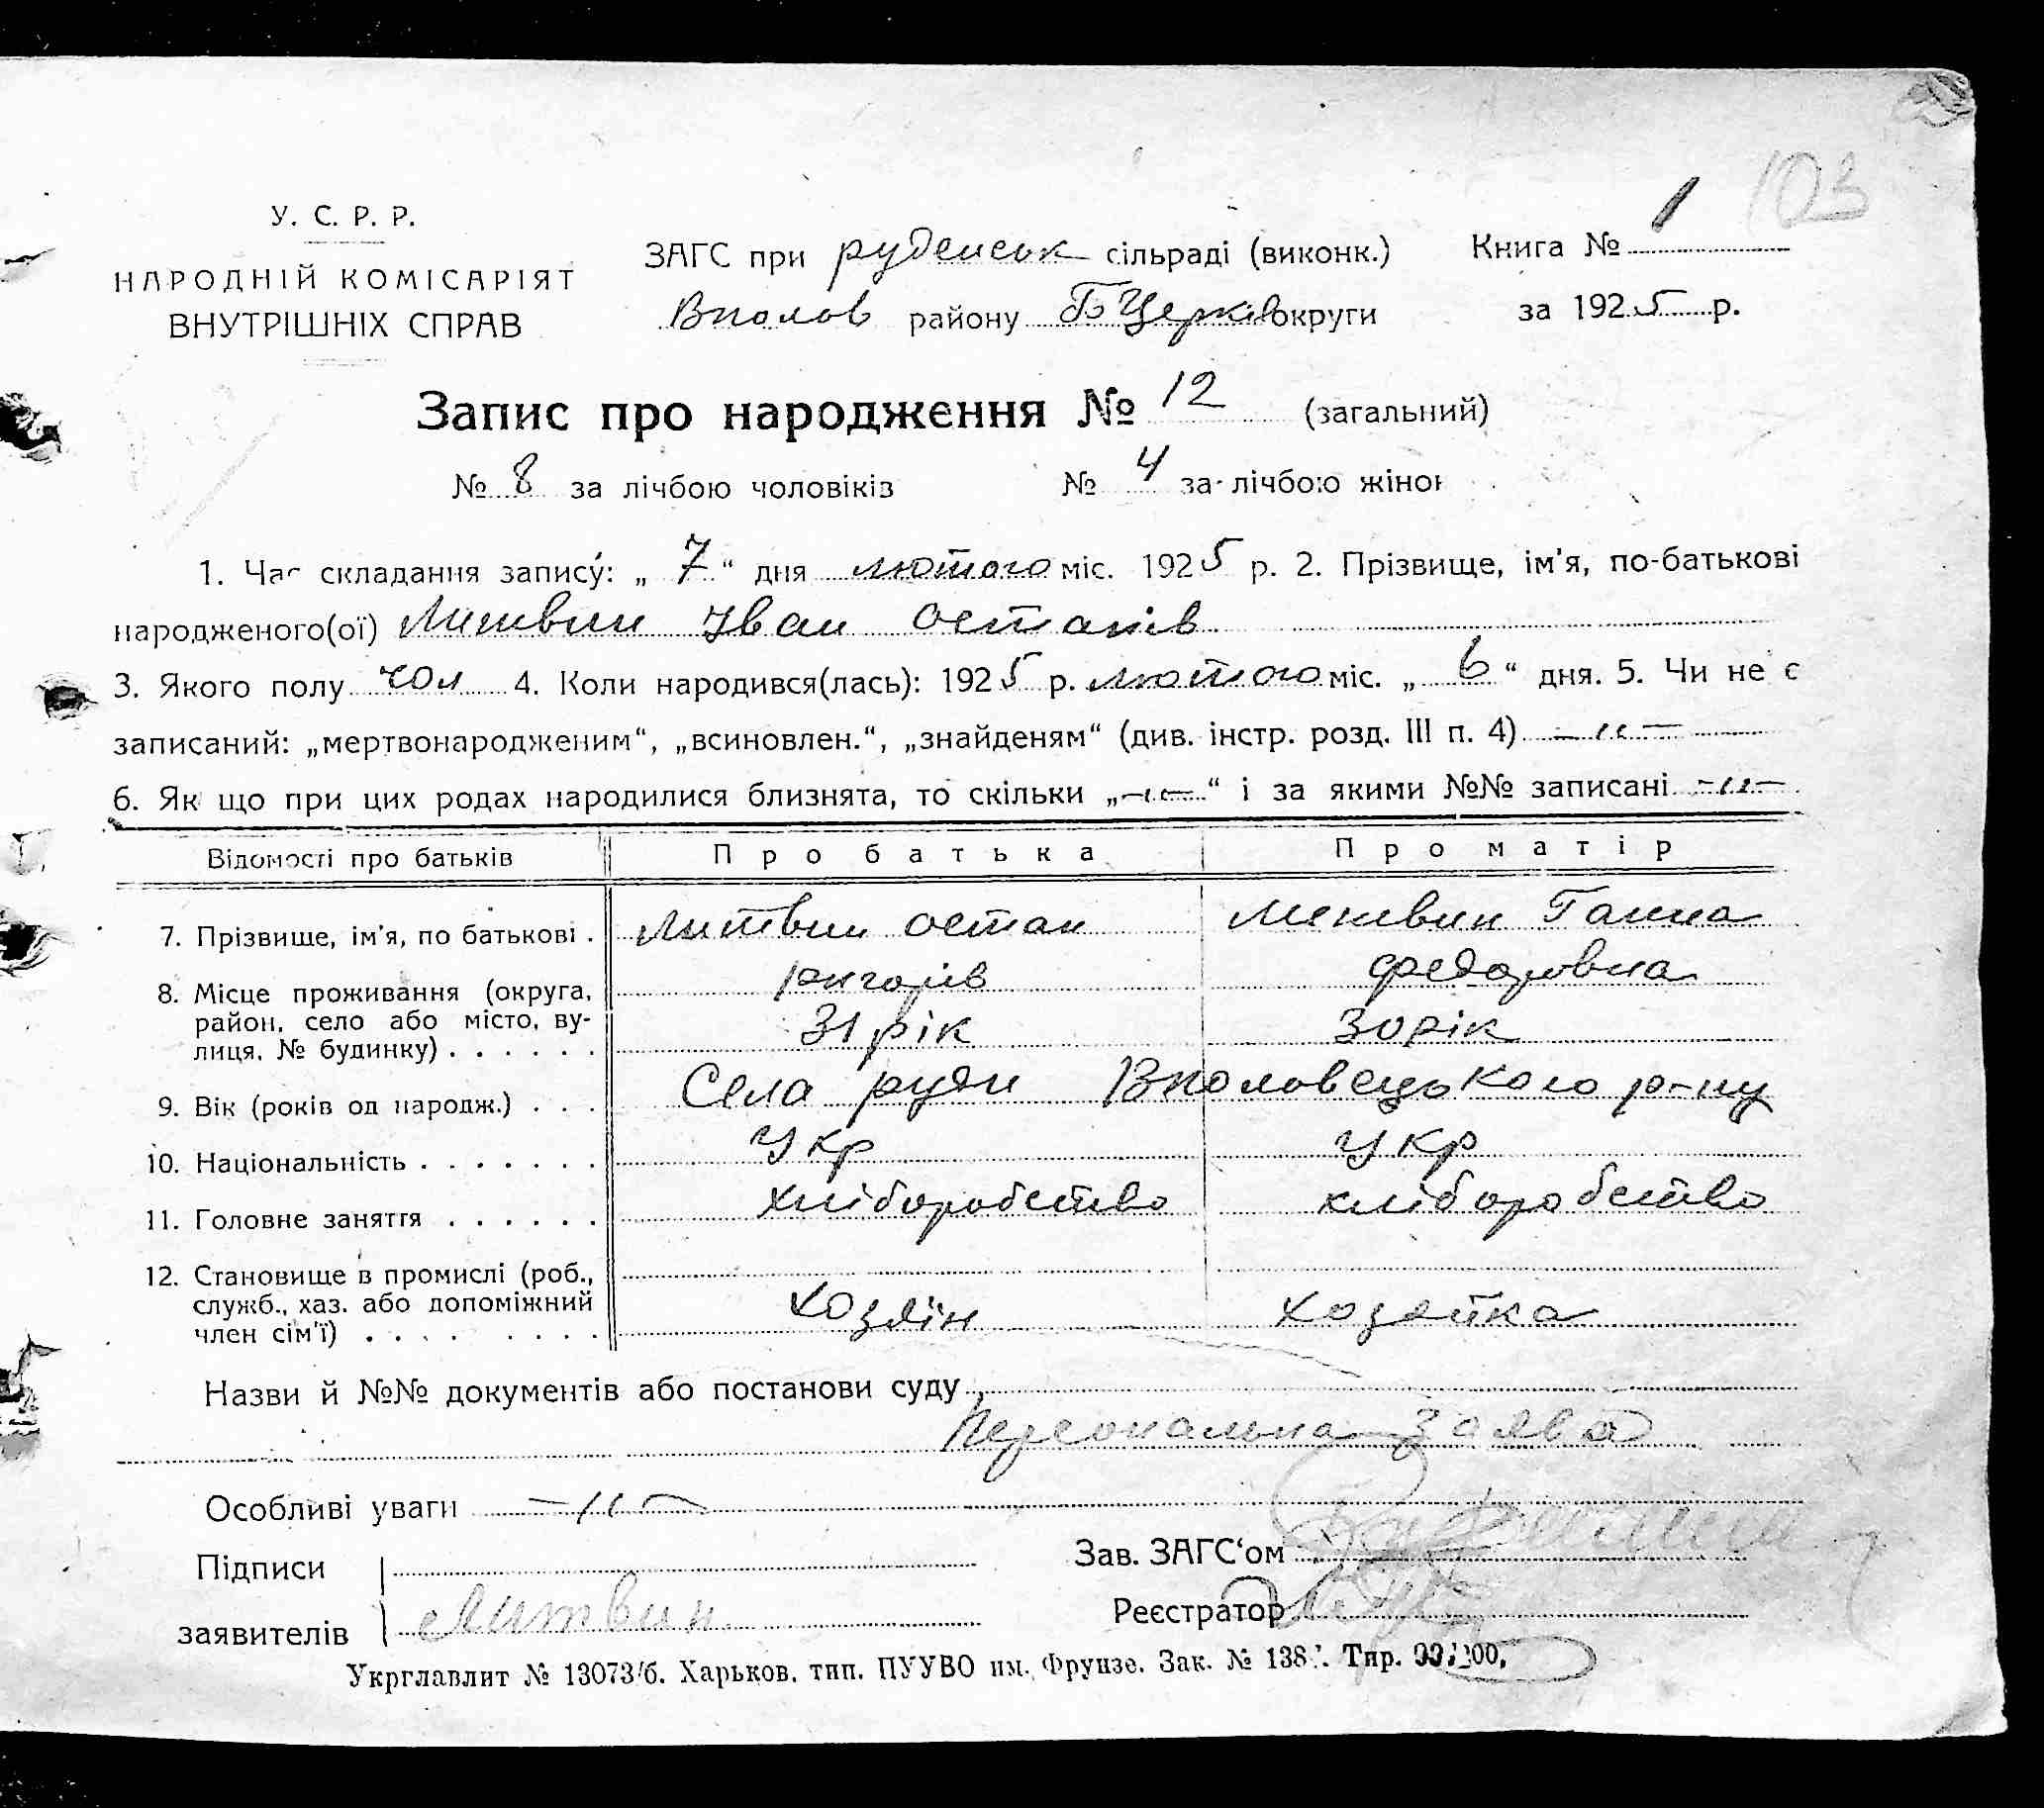 103
У. С. Р. Р.
НАРОДНІЙ КОМІСАРІЯТ
ВНУТРІШНІХ СПРАВ
ЗАГС при руденськ сільраді (виконк.)
Вполов району Б Церків округи
Книга № 1
за 1925 р.
Запис про народження № 12 (загальний)
№ 8 за лічбою чоловіків № 4 за лічбою жінок
1. Час складання запису: „ 7 “ дня лютого міс. 1925 р. 2. Прізвище, ім'я, по-батькові
народженого(ої) Литвин Іван Остапів
3. Якого полу чол 4. Коли народився(лась): 1925 р. лютого міс. „ 6 “ дня. 5. Чи не є
записаний: „мертвонародженим“, „всиновлен.“, „знайденям“ (див. інстр. розд. III п. 4) –"–
6. Як що при цих родах народилися близнята, то скільки „–"–“ і за якими №№ записані –"–
Відомості про батьків Про батька Про матір
7. Прізвище, ім'я, по батькові . Литвин Остап Литвин Ганна
григорів Федоровна
8. Місце проживання (округа, район, село або місто, ву-
лиця, № будинку) . . . . . . 31 рік 30 рік
9. Вік (років од народж.) . . . Села руди Вполовецького р-ну
10. Національність . . . . . . . Укр Укр
11. Головне заняття . . . . . . хліборобство хліборобство
12. Становище в промислі (роб.,
служб., хаз. або допоміжний
член сім'ї) . . . . . . . . хозяїн хозяйка
Назви й №№ документів або постанови суду
Персональна заява
Особливі уваги –"–
Підписи
заявителів Литвин
Зав. ЗАГС'ом
Реєстратор
Укрглавлит № 13073/б. Харьков, тип. ПУУВО им. Фрунзе. Зак. № 138 Тир.